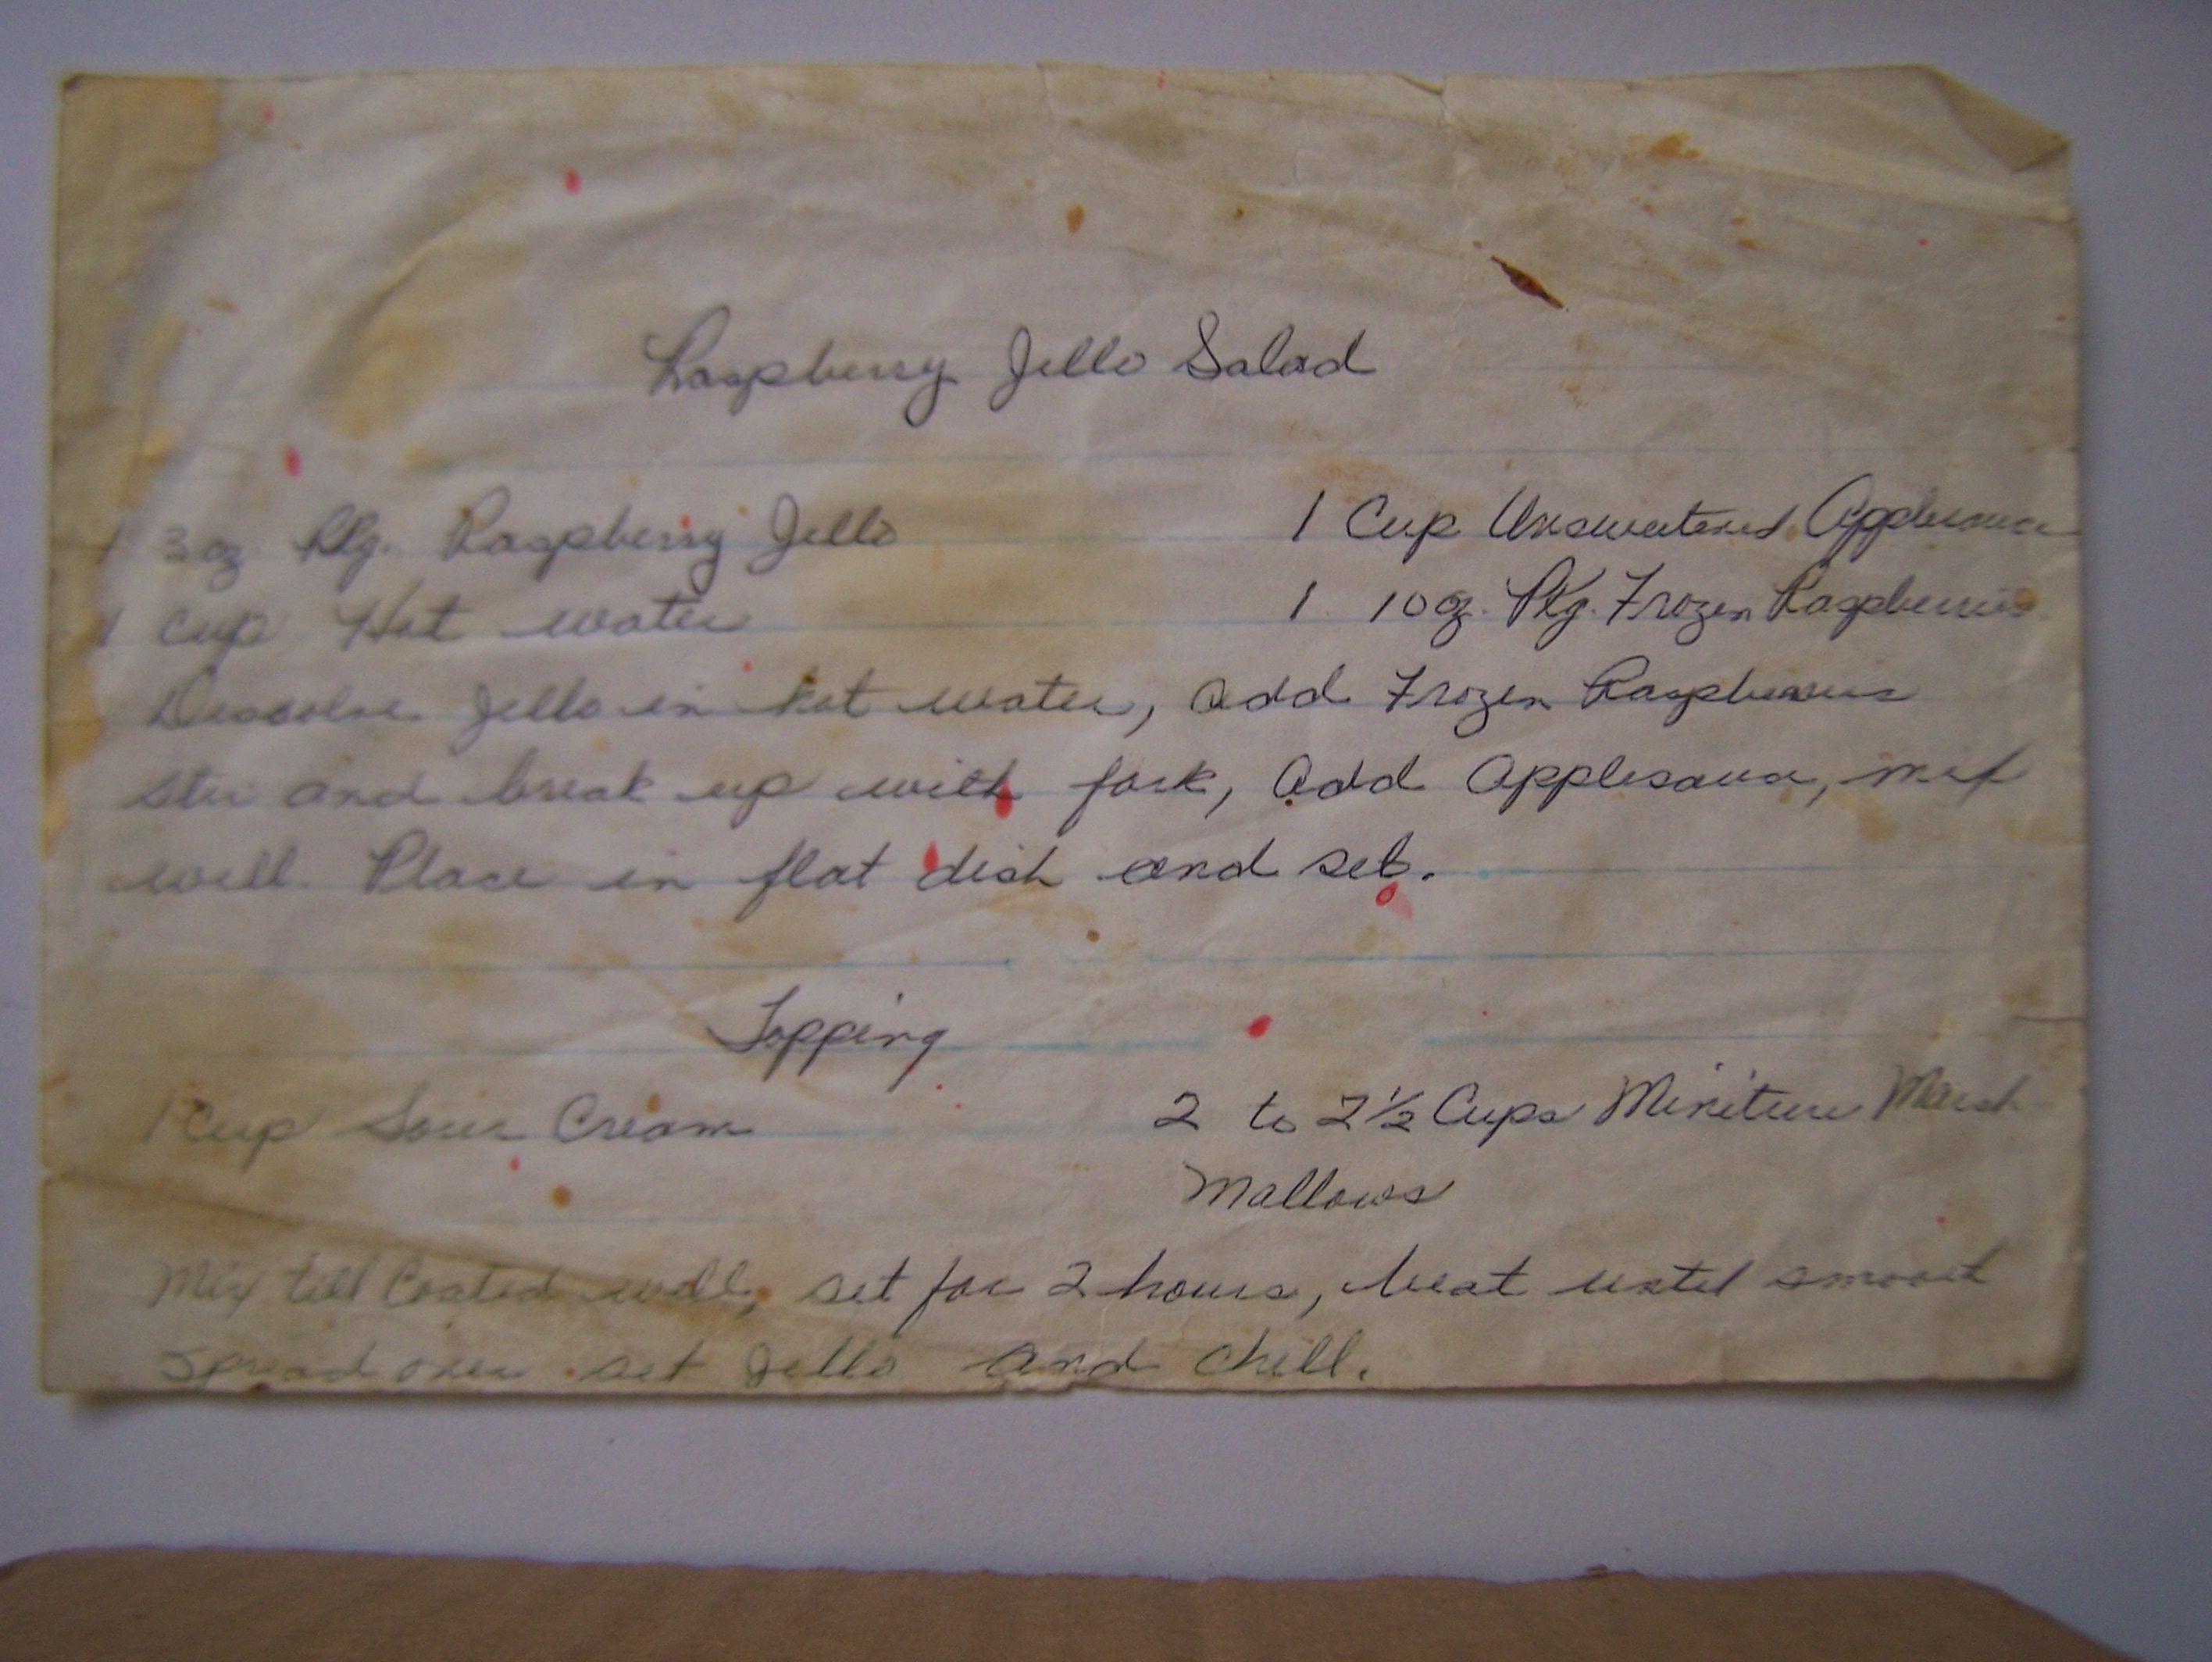 Raspberry Jello Salad
1 3 oz Pkg. Raspberry Jello 1 Cup Unsweetened Applesauce
1 cup Hot water 1 10 oz. Pkg. Frozen Raspberries
Dissolve Jello in hot water, add Frozen Raspberries
stir and break up with fork, add Applesauce, mix
well. Place in flat dish and set.
Topping
1 Cup Sour Cream 2 to 2 1/2 Cups Miniture Marsh
Mallows
Mix till Coated well, set for 2 hours, beat until smooth
Spread over set Jello and chill.